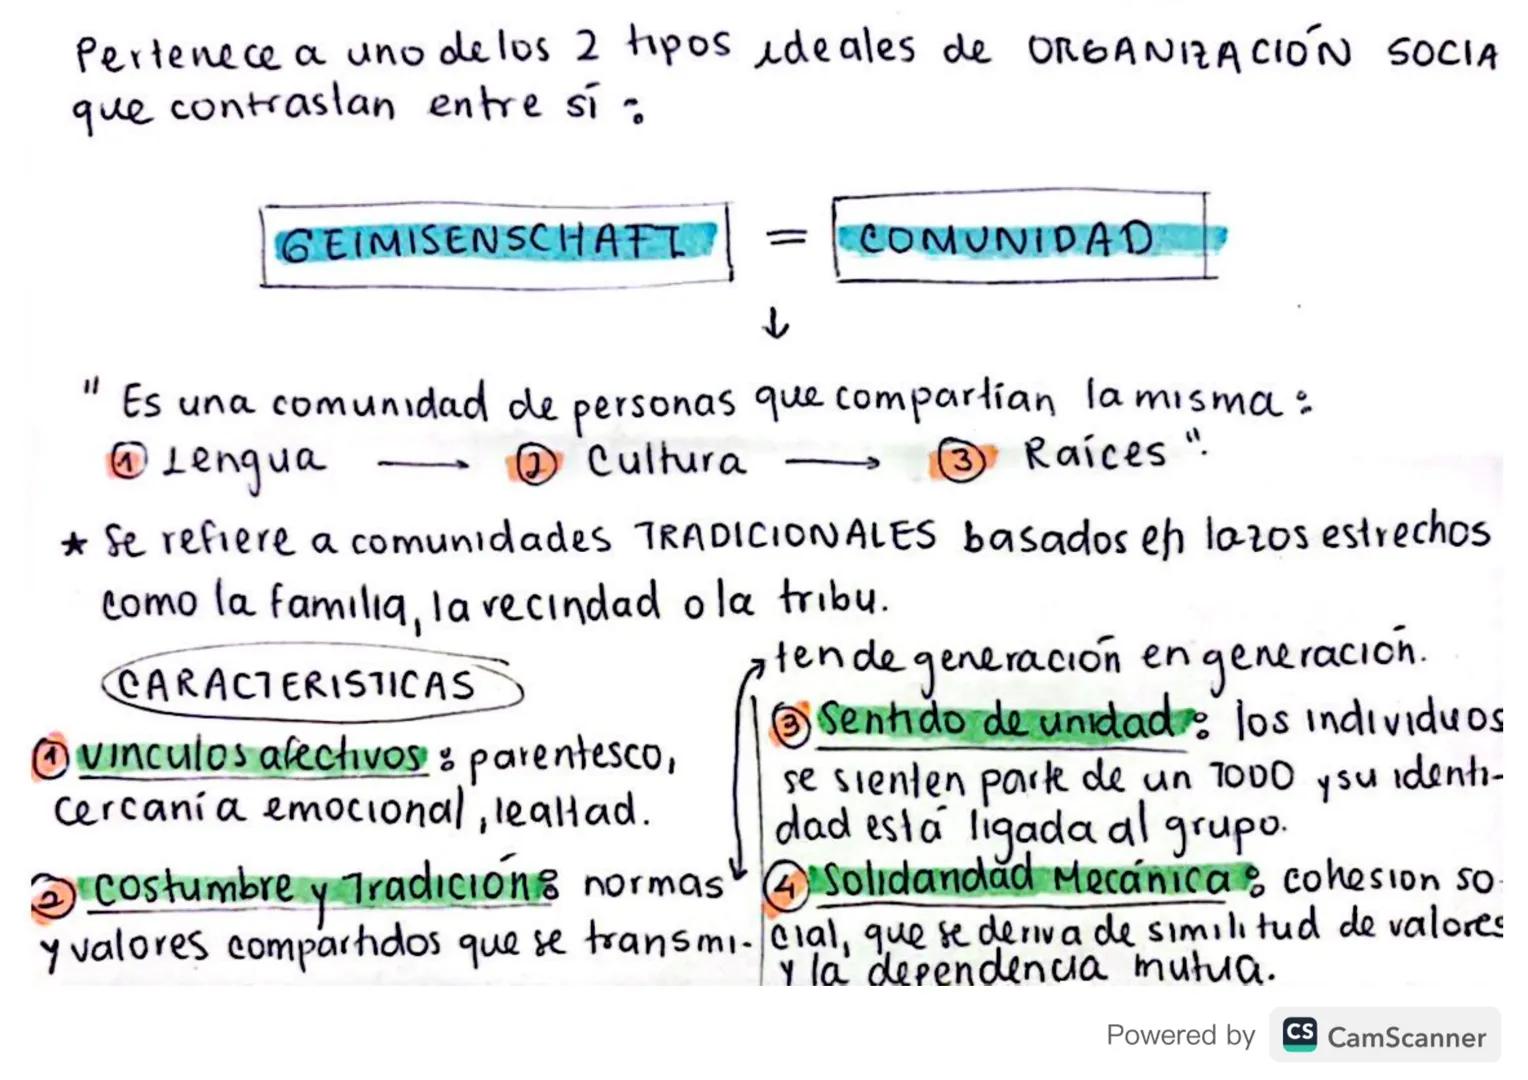 Pertenece a uno de los 2 tipos ideales de ORGANIZACIÓN SOCIA
que contrastan entre sí :
GEIMISENSCHAFT = COMUNIDAD
↓
" Es una comunidad de personas que compartían la misma :
① Lengua → ② Cultura → ③ Raíces ".
★ Se refiere a comunidades TRADICIONALES basados en lazos estrechos
como la familia, la vecindad o la tribu.
CARACTERISTICAS
① vinculos afectivos : parentesco,
cercanía emocional, lealtad.
② costumbre y Tradición : normas
y valores compartidos que se transmi-
ten de generación en generación.
③ Sentido de unidad : los individuos
se sienten parte de un TODO y su identi-
dad está ligada al grupo.
④ Solidaridad Mecánica : cohesion so-
cial, que se deriva de similitud de valores
y la dependencia mutua.
Powered by CS CamScanner